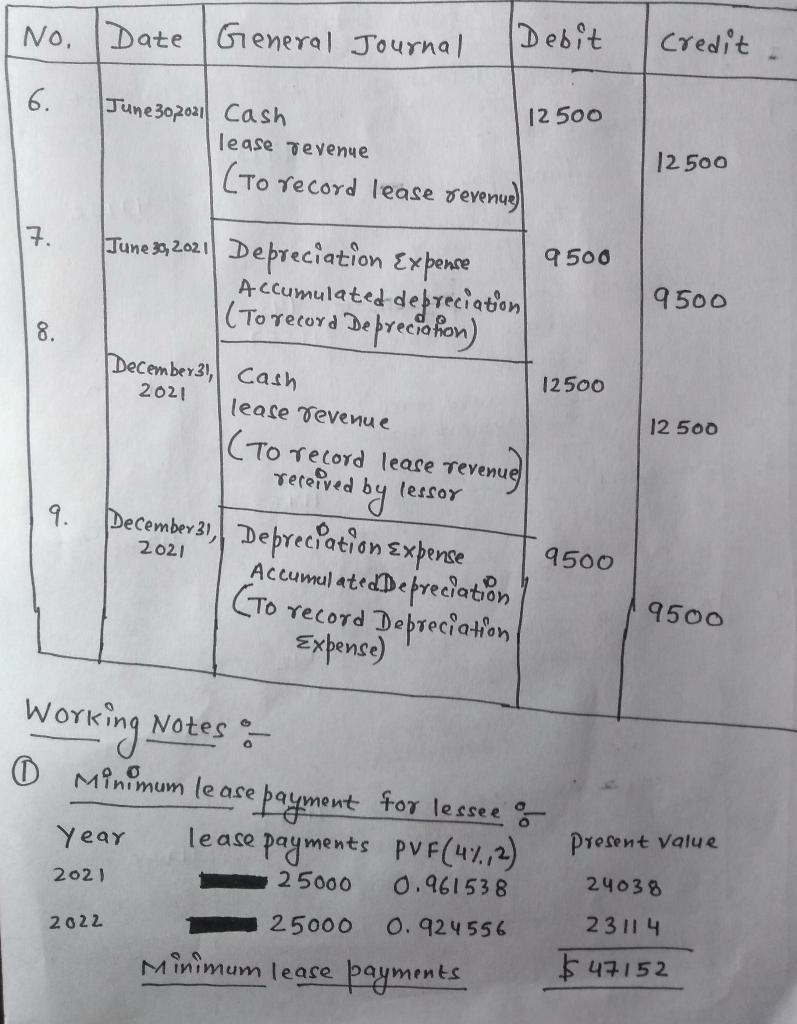 No. Date General Journal Debit Credit
6. June 30, 2021 Cash 12500
lease revenue 12500
(To record lease revenue)
7. June 30, 2021 Depreciation Expense 9500
Accumulated depreciation 9500
(To record Depreciation)
8. December 31, 2021 Cash 12500
lease revenue 12500
(To record lease revenue)
received by lessor
9. December 31, 2021 Depreciation Expense 9500
Accumulated Depreciation 9500
(To record Depreciation
Expense)
Working Notes :-
① Minimum lease payment for lessee :-
Year lease payments PVF(4%,2) present value
2021 25000 0.961538 24038
2022 25000 0.924556 23114
Minimum lease payments $ 47152